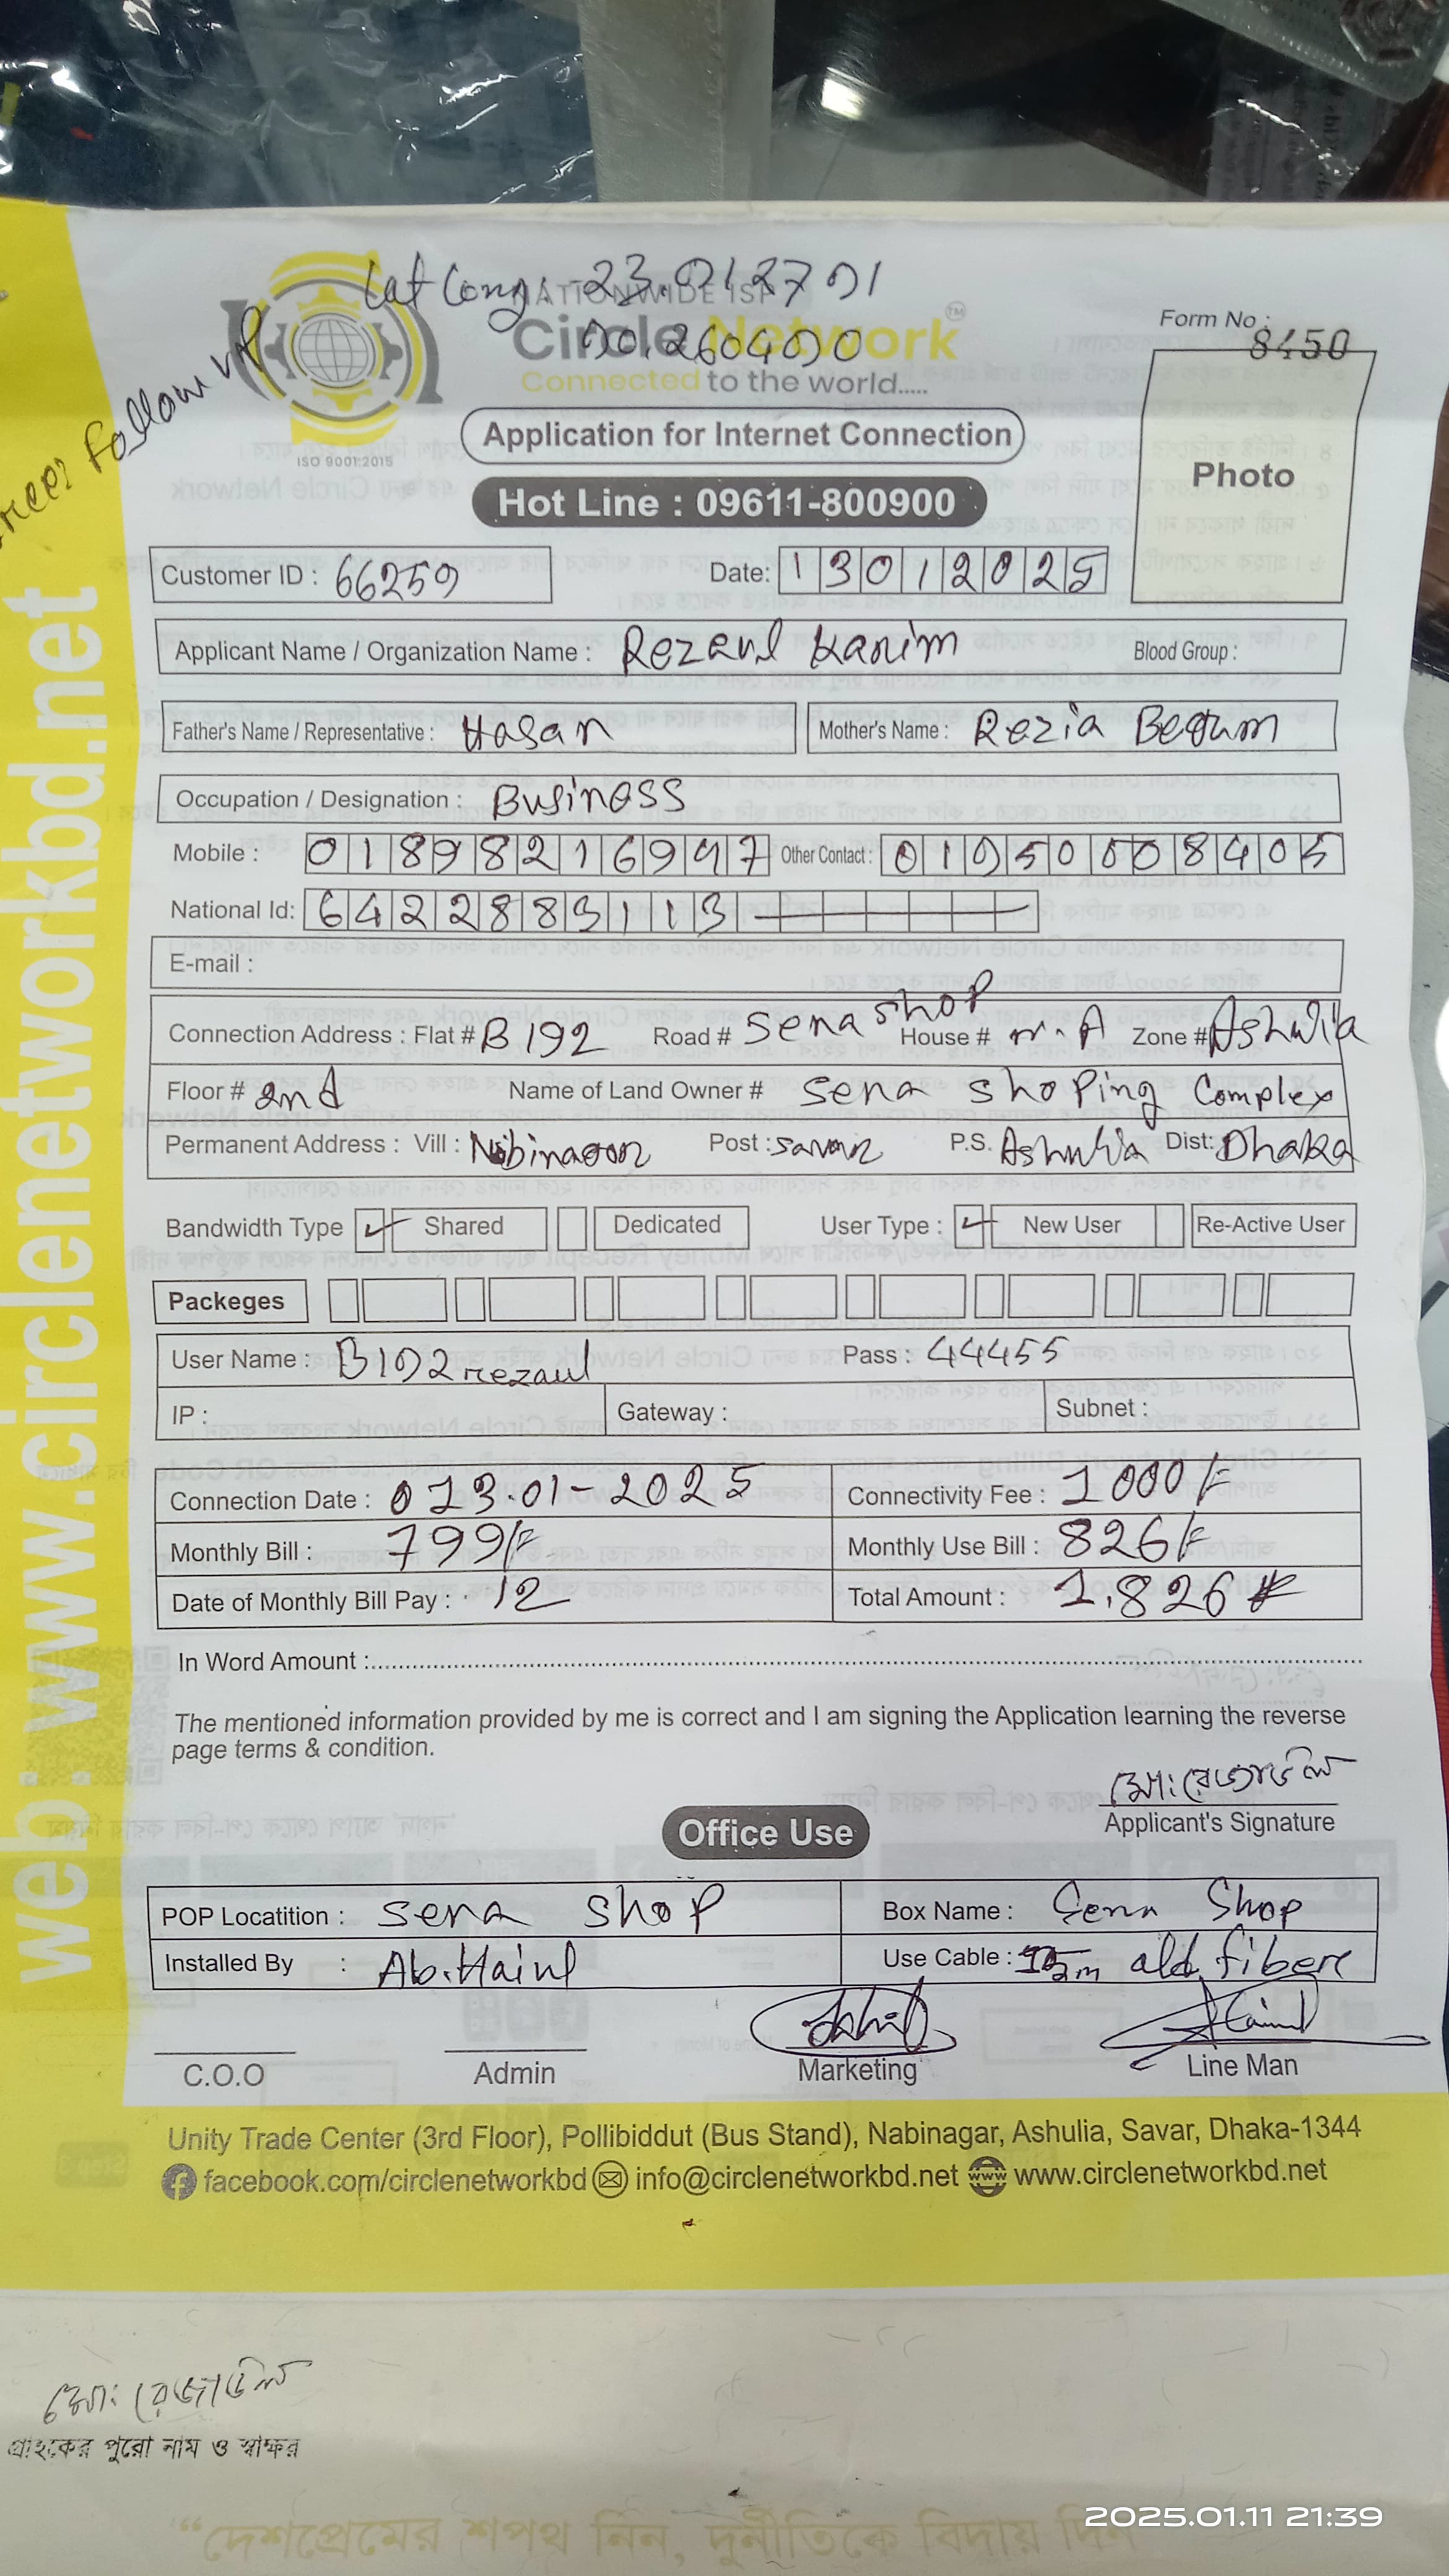 Lat Long: -23.912791
NATIONWIDE ISP
Circle Network™
90.260490
Connected to the world.....
Follow up
ISO 9001:2015
Form No : 8450
Application for Internet Connection
Photo
Hot Line : 09611-800900
Customer ID : 66259 Date: 13012025
Applicant Name / Organization Name : Rezaul Karim Blood Group :
Father's Name / Representative : Hasan Mother's Name : Rezia Begum
Occupation / Designation : Business
Mobile : 01898216947 Other Contact : 01950008405
National Id: 6422883113
E-mail :
Connection Address : Flat # B 192 Road # Sena Shop House # m.A Zone # Ashulia
Floor # 2nd Name of Land Owner # Sena Shoping Complex
Permanent Address : Vill : Nabinagar Post : Savar P.S. Ashulia Dist: Dhaka
Bandwidth Type ✓ Shared Dedicated User Type : ✓ New User Re-Active User
Packeges
User Name : B192rezaul Pass : 44455
IP : Gateway : Subnet :
Connection Date : 013-01-2025 Connectivity Fee : 1000/=
Monthly Bill : 799/= Monthly Use Bill : 826/=
Date of Monthly Bill Pay : 12 Total Amount : 1,826/=
In Word Amount :
The mentioned information provided by me is correct and I am signing the Application learning the reverse
page terms & condition.
মো: রেজাউল
Applicant's Signature
Office Use
POP Locatition : Sena Shop Box Name : Sena Shop
Installed By : Ab.Hainl Use Cable : old fiber
C.O.O Admin Marketing Line Man
Unity Trade Center (3rd Floor), Pollibiddut (Bus Stand), Nabinagar, Ashulia, Savar, Dhaka-1344
facebook.com/circlenetworkbd info@circlenetworkbd.net www www.circlenetworkbd.net
web: www.circlenetworkbd.net
মো: রেজাউল
গ্রাহকের পুরো নাম ও স্বাক্ষর
“দেশপ্রেমের শপথ নিন, দুর্নীতিকে বিদায় দিন
2025.01.11 21:39